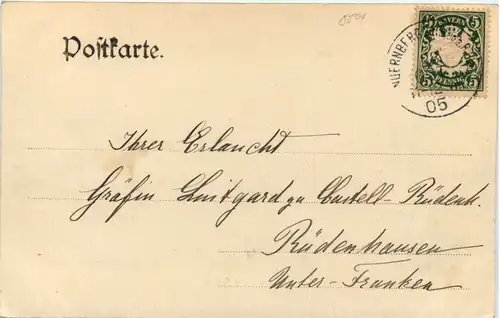 Postkarte.
BAYERN
5 5
5 PFENNIG 5
NUERNBERG
05
Ihrer Erlaucht
Gräfin Luitgard zu Castell-Rüdenh.
Rüdenhausen
Unter-Franken